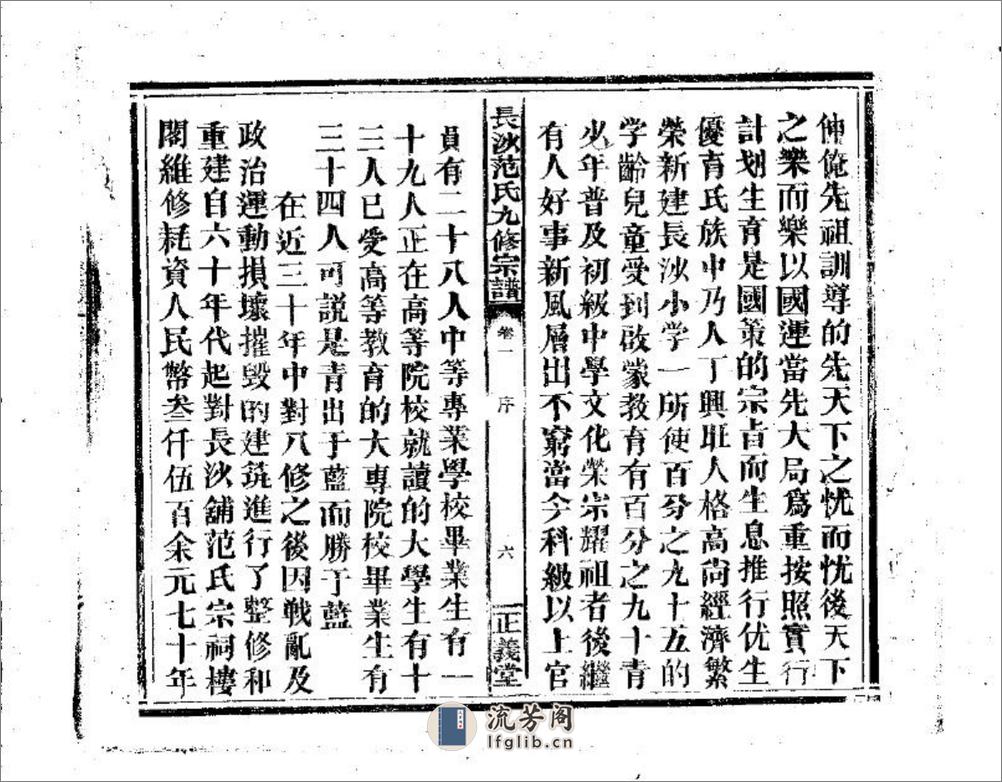 伸俺先祖訓尊的先天下之忧而忧後天下
之樂而樂以國運當先大局爲重按照實行
計划生育是國策的宗旨而生息推行优生
優育氏族中乃人丁興旺人格高尚經濟繁
榮新建長沙小学一所使百分之九十五的
学齡兒童受到啟蒙教育有百分之九十青
少年普及初級中學文化榮宗耀祖者後繼
有人好事新風層出不窮當今科級以上官
長沙范氏九修宗譜 卷一 序 六 正義堂
員有二十八人中等專業學校畢業生有一
十九人正在高等院校就讀的大學生有十
三人已受高等教育的大專院校畢業生有
三十四人可説是青出于藍而勝于藍
在近三十年中對八修之後因戰亂及
政治運動損壞摧毀的建筑進行了整修和
重建自六十年代起對長沙舖范氏宗祠樓
閣維修耗資人民幣叁仟伍百余元七十年
流芳阁
lfglib.cn